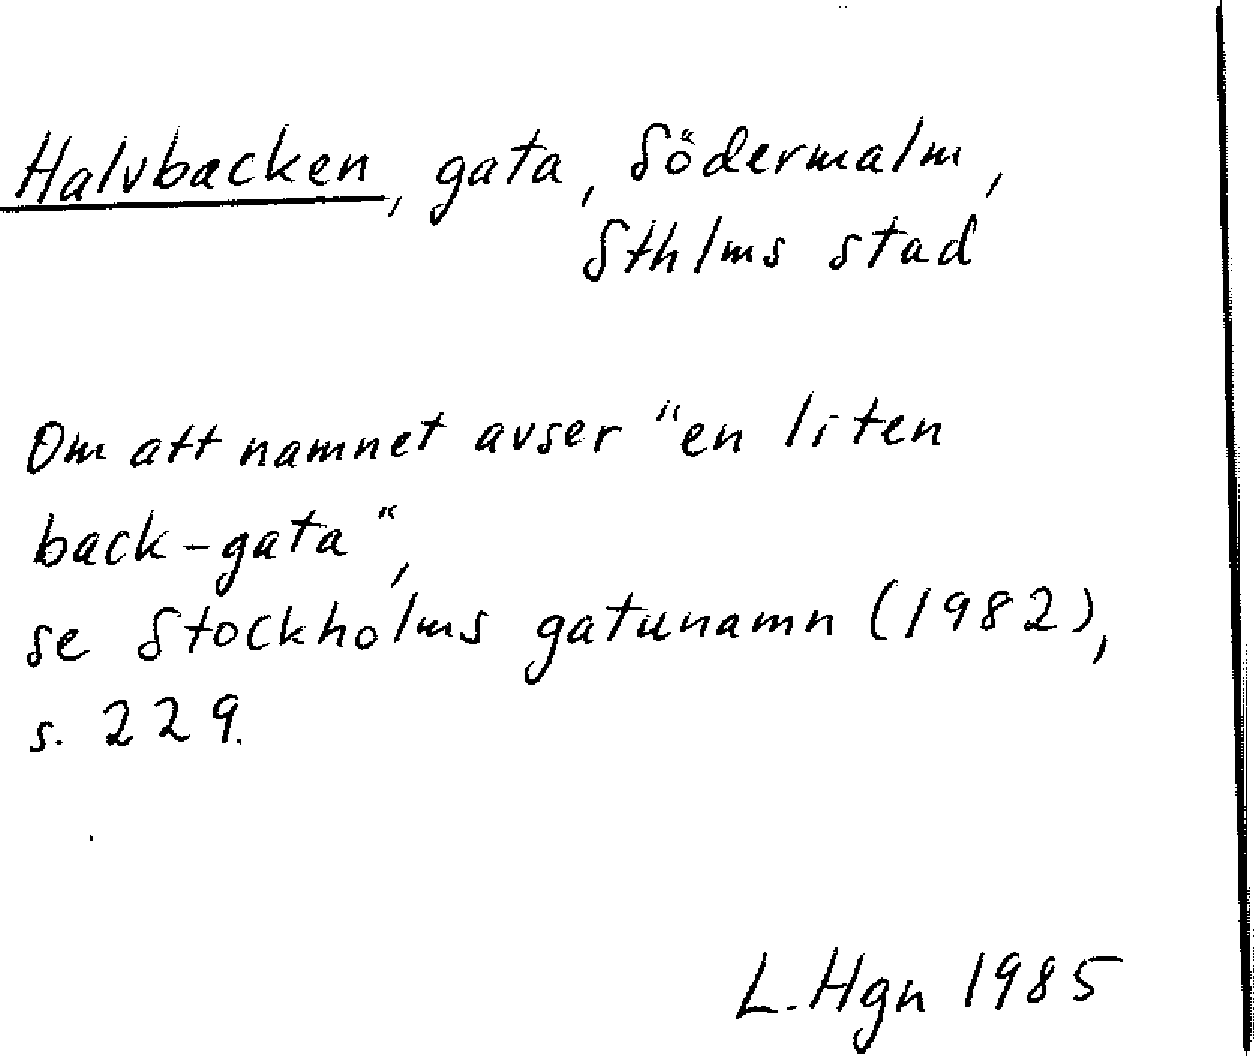 Halvbacken, gata, Södermalm,
Sthlms stad
Om att namnet avser "en liten
back-gata",
se Stockholms gatunamn (1982),
s. 229.
L. Hgn 1985